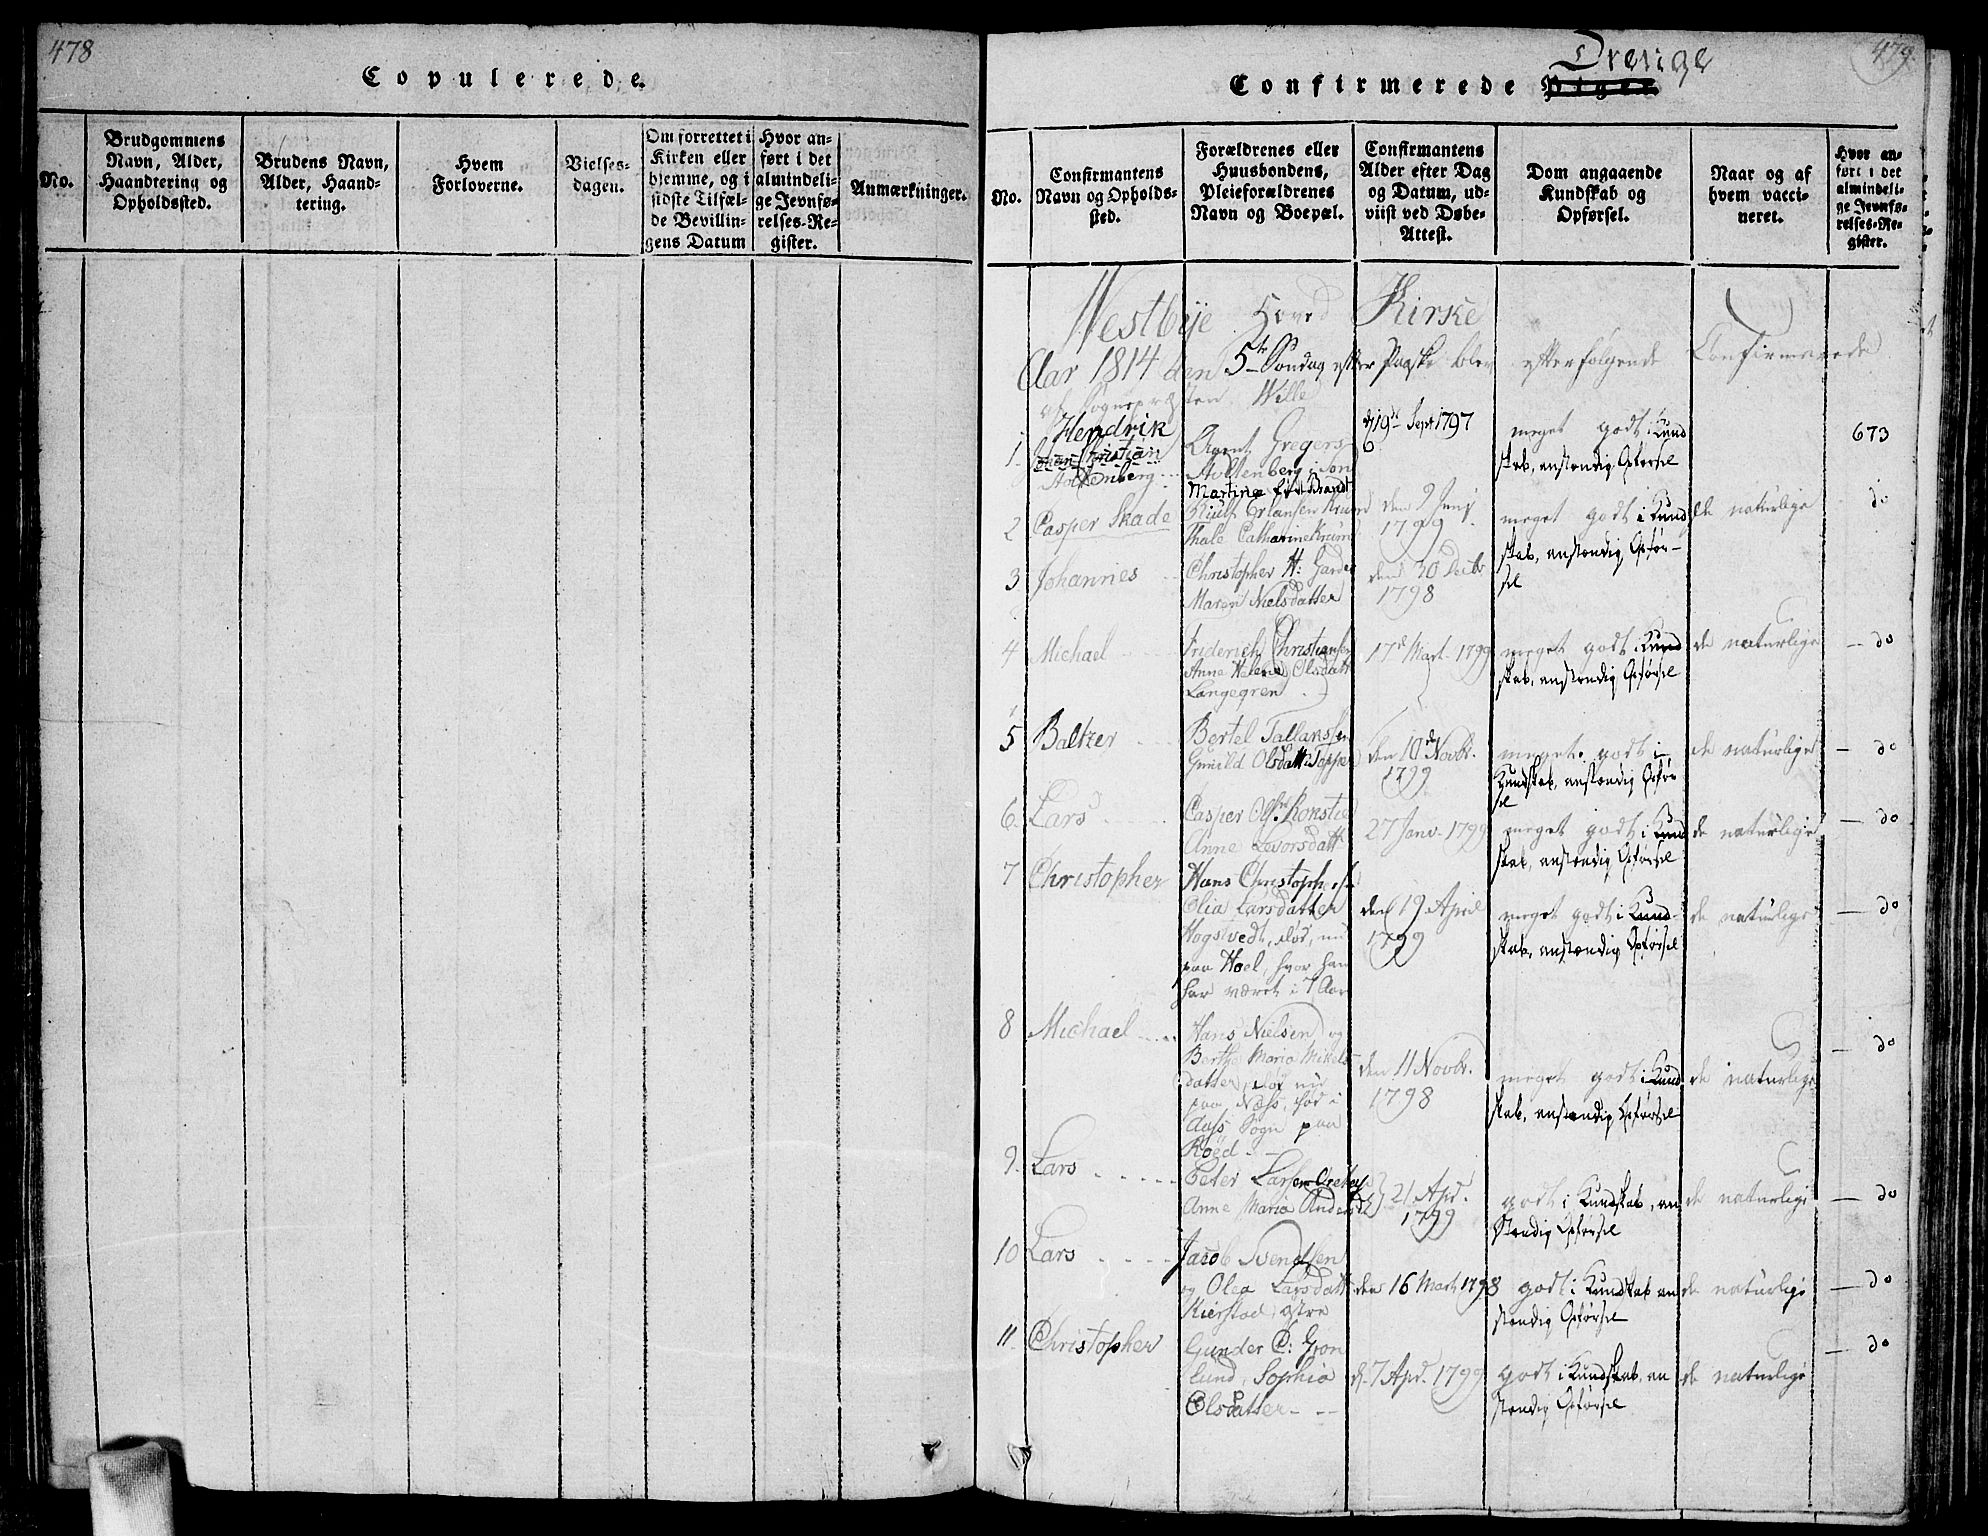 478
Copulerede.
No.
Brudgommens
Navn, Alder,
Haandtering og
Opholdssted.
Brudens Navn,
Alder, Haand-
tering.
Hvem
Forloverne.
Vielses-
dagen.
Om forrettet i
Kirken eller
hjemme, og i
sidste Tilfæl-
de Bevillin-
gens Datum
Hvor an-
ført i det
almindeli-
ge Jevnfø-
relses-Re-
gister.
Anmærkninger.
479.
Drenge
Confirmerede Piger
No.
Confirmantens
Navn og Opholds-
sted.
Forældrenes eller
Huusbondens,
Pleieforældrenes
Navn og Boepæl.
Confirmantens
Alder efter Dag
og Datum, ud-
viist ved Døbe-
Attest.
Dom angaaende
Kundskab og
Opførsel.
Naar og af
hvem vacci-
neret.
Hvor an-
ført i det
almindeli-
ge Jevnfø-
relses-Re-
gister.
Westbye Hoved Kirke
Aar 1814 den 5te Søndag efter Paaske blev efterfølgende Confirmerede
af Sognepræsten Wille
1
Hendrik
Christian
Stoltenberg
Agent Gregers
Stoltenberg
Martine Brandt
d 19de Sept 1797
meget godt i Kund
skab, anstændig Opførsel
673
2
Casper Skade
Thale Catharine Krum
den 9 Junij
1799
meget godt i Kund
skab, anstændig Opfør-
sel
de naturlige
do
3
Johannes
Christopher H: Garder
Maren Nielsdatter
den 30 Decbr
1798
4
Michael
Friderich Christiansen
Anne Helene Olsdatt
Langegren
17de Mart. 1799
meget godt i Kund
skab, anstændig Opførsel
de naturlige
- do
5
Baltzer
Bertel Tallaksen
Gunild Olsdatt Toppe
den 10de Novbr.
1799
meget godt i
Kundskab, anstændig Opfør
sel
de naturlige
- do
6.
Lars
Casper Olsn Konstie
Anne Levorsdatt
27 Janv. 1799
meget godt i Kund
skab, anstændig Opførsel
de naturlige
- do
7
Christopher
Hans Christophersen
Olia Larsdatter
Hogstvedt, død, nu
paa Hoel, hvor han
har været i 7 Aar
den 19 April
1799
meget godt i Kund-
skab, anstændig Opførsel
de naturlige
- do
8
Michael
Hans Nielsen og
Berthe Maria Mikels
datter, død nu
paa Næss, død i
Aass Sogn paa
Røed
den 11 Novbr.
1798
meget godt i Kund
skab, anstændig Opførsel
de naturlige
- do
9.
Lars
Peter Larsen
Anne Maria Andersd
21 Apr.
1799
godt i Kundskab, an
stændig Opførsel
de naturlige
- do
10
Lars
Jacob Svendsen
og Olea Larsdatt
Kierstad, østre
den 16 Mart 1798
godt i Kundskab an
stændig Opførsel
de naturlige
- do
11
Christopher
Gunder C: Grøn
lund, Sophia
Olsdatter
d. 7 Apr. 1799
godt i Kundskab, an
stændig Opførsel
de naturlige
- do